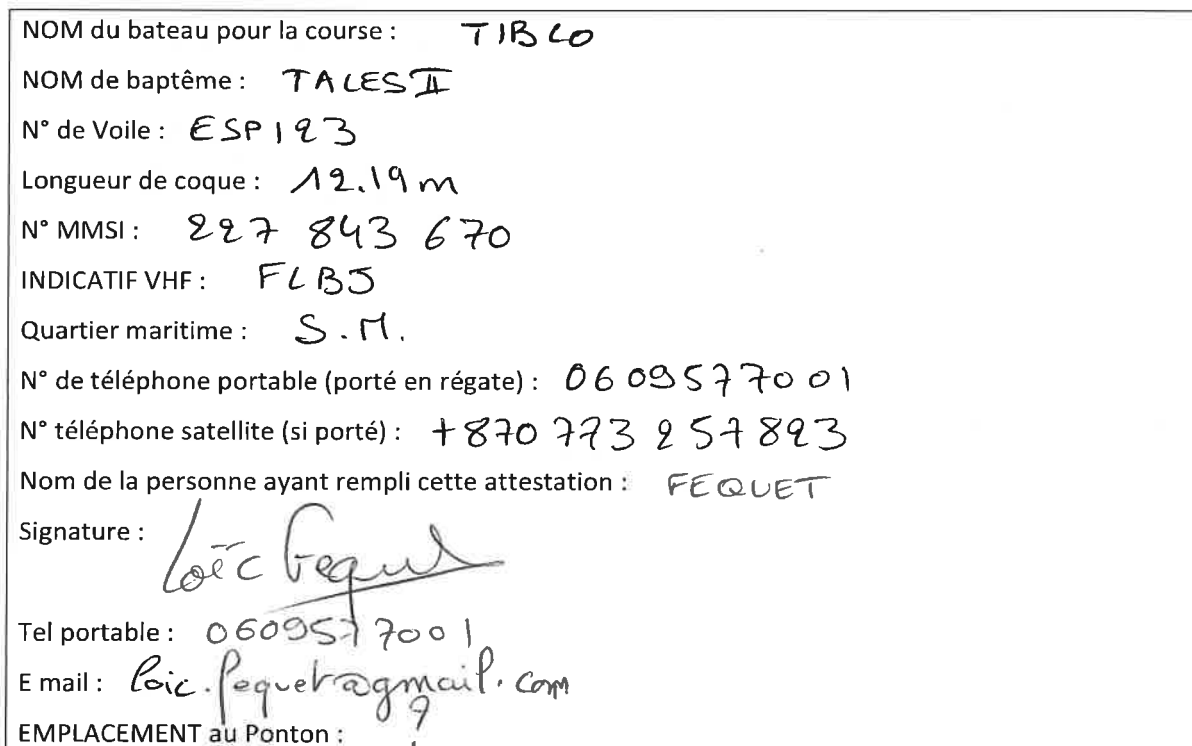 NOM du bateau pour la course : TIBCO
NOM de baptême : TALES II
N° de Voile : ESP 123
Longueur de coque : 12.19 m
N° MMSI : 227 843 670
INDICATIF VHF : FLBJ
Quartier maritime : S.M.
N° de téléphone portable (porté en régate) : 0609577001
N° téléphone satellite (si porté) : +870 773 257823
Nom de la personne ayant rempli cette attestation : FEQUET
Signature : Loïc Fequet
Tel portable : 0609577001
E mail : loic.fequet@gmail.com
EMPLACEMENT au Ponton : ?